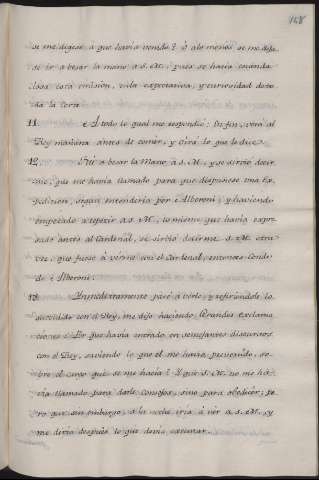 168
se me dijese a que havia venido? ò alo menos se me dejase ir a besar la mano a S. M., pues se hacia escandalosa esta omision, vista expectativa, y curiosidad de toda la Corte
11. A todo lo qual me respondiò: En fin, verà al
Rey mañana antes de comer, y oirà lo que le dice.
12. Fui a besar la Mano à S. M., y se sirviò decirme, que me havia llamado para que dispusiese una Expedicion, segun entenderia por Alberoni; y haviendo
empezado a repetir a S. M. lo mismo que havia expresado antes al Cardenal, se sirviò decirme S. M. otra
vez, que fuese à verme con el Cardenal, entonces Conde
de Alberoni.
13. Inmediatamente pasè à verlo, y refiriendole lo
sucedido con el Rey, me dijo haciendo Grandes exclamaciones: Por que havia entrado en semejantes discursos
con el Rey, sabiendo lo que el me havia prevenido, sobre el cargo que se me hacia? Y que S. M. no me havia llamado para darle Consejos, sino para obedecer; pero que sin embargo, a la noche iria à vèr a S. M., y
me diria despues lo que devia executar.